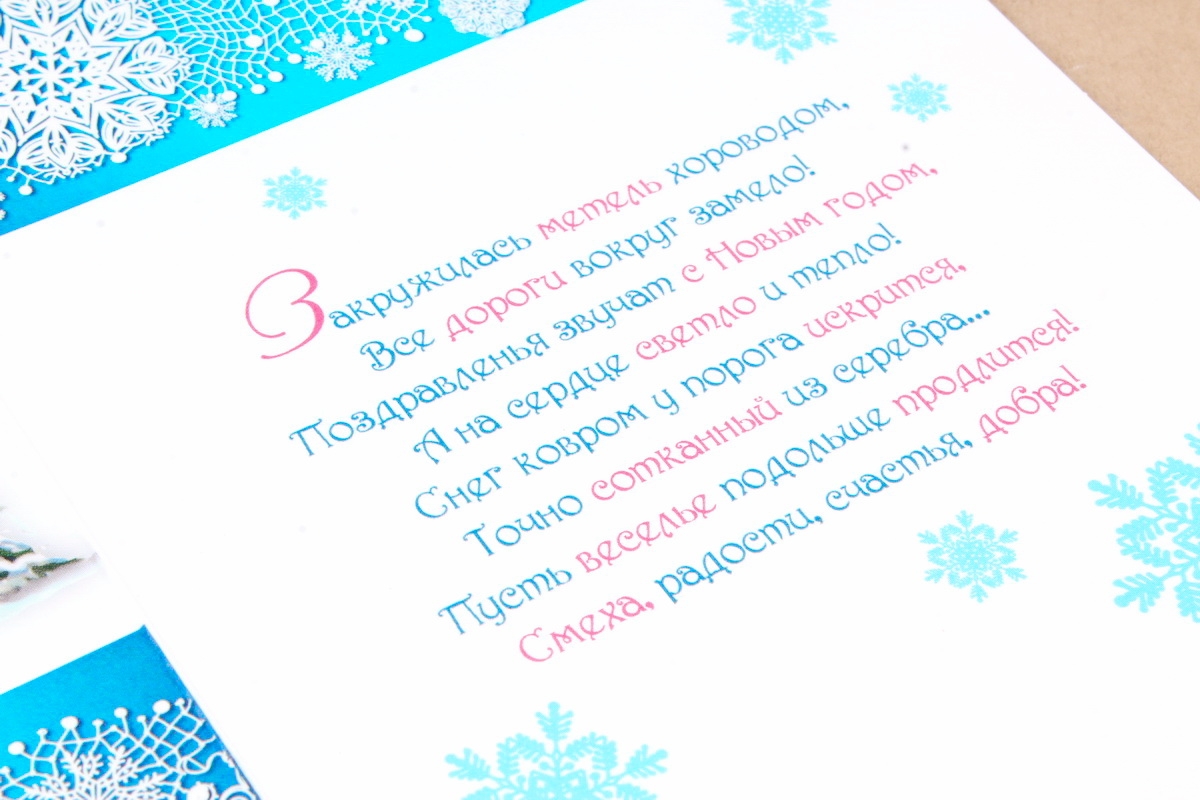 Закружилась метель хороводом,
Все дороги вокруг замело!
Поздравленья звучат с Новым годом,
А на сердце светло и тепло!
Снег ковром у порога искрится,
Точно сотканный из серебра...
Пусть веселье подольше продлится!
Смеха, радости, счастья, добра!